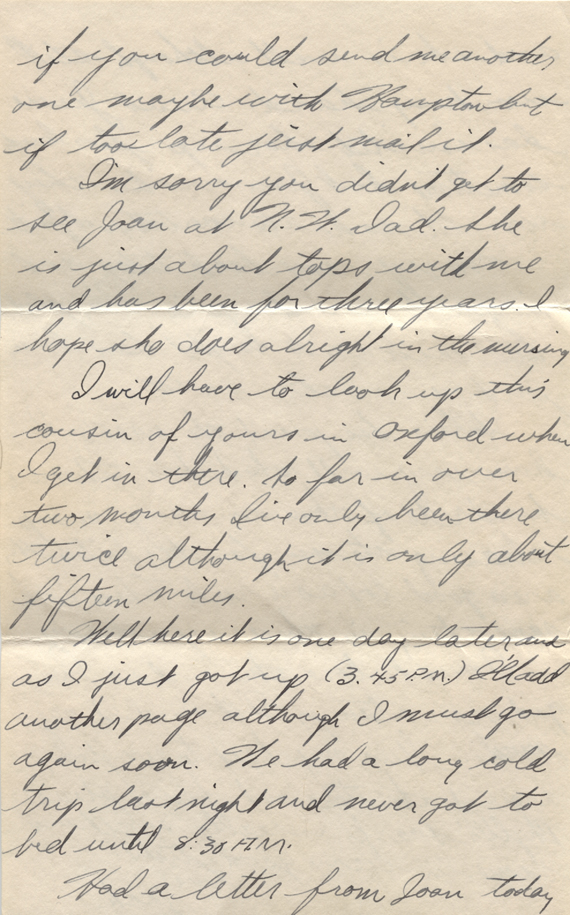 if you could send me another
one maybe with Hampton but
if too late just mail it.
I'm sorry you didn't get to
see Joan at N.W. Dad. She
is just about tops with me
and has been for three years. I
hope she does alright in the nursing
I will have to look up this
cousin of yours in Oxford when
I get in there. So far in over
two months I've only been there
twice although it is only about
fifteen miles.
Well here it is one day later and
as I just got up (3.45 P.M.) I'll add
another page although I must go
again soon. We had a long cold
trip last night and never got to
bed until 8:30 A.M.
Had a letter from Joan today